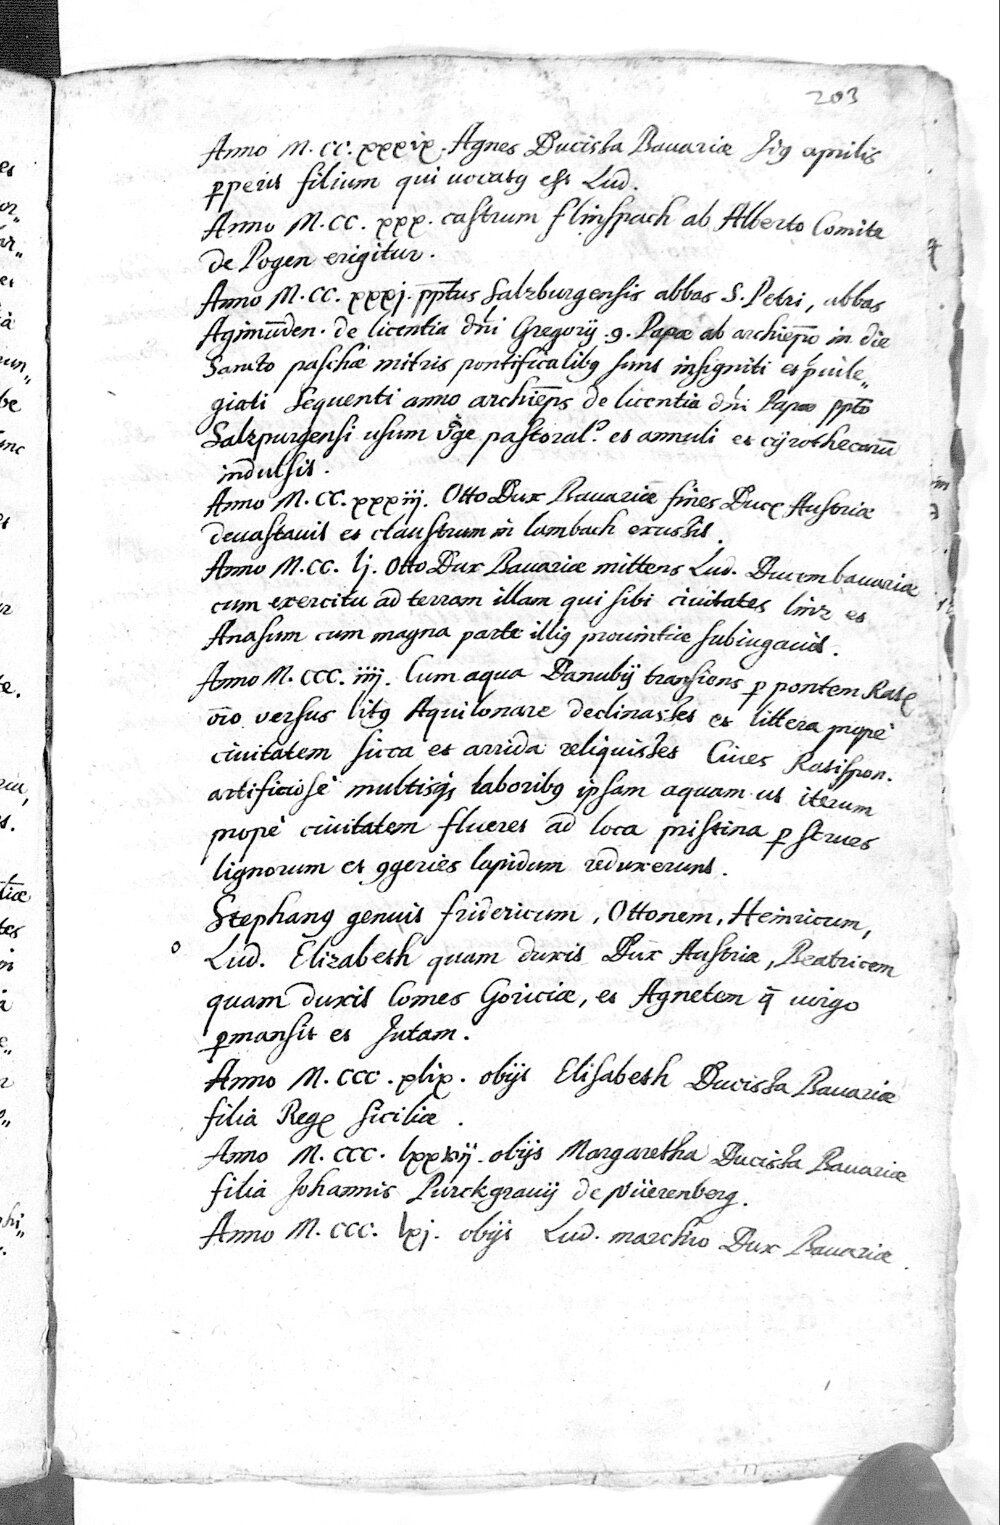 203
Anno M. CC. xxxix. Agnes Ducissa Bauariæ Idꝰ aprilis
ꝑperit filium qui uocatꝰ est Lud.
Anno M. CC. xxx. castrum flinspach ab Alberto Comite
de Pogen erigitur.
Anno M. CC. xxxj. pp̄tus Salzburgensis abbas S. Petri, abbas
Agimūden. de licentia dn̄i Gregorij .9. Papæ ab archiep̄o in die
Sancto paschæ mitris pontificalibꝰ sunt insigniti et priuile„
giati sequenti anno archiep̄s de licentia dn̄i Papæ pp̄to
Salzpurgensi usum v̄gæ pastoral. et annuli et cyrothecarū
indulsit.
Anno M. CC. xxxiij. Otto Dux Bauariæ fines Ducꝭ Austriæ
deuastauit et claustrum in lambach exussit.
Anno M. CC. lj. Otto Dux Bauariæ mittens Lud. Ducem bauariæ
cum exercitu ad terram illam qui sibi ciuitates linz et
Anasum cum magna parte illiꝰ prouintiæ subiugauit.
Anno M. CCC. iiij. Cum aqua Danubij transiens ꝑ pontem Ratꝭ
versus litꝰ Aquilonare declinasset et littera propè
ciuitatem sicca et arrida reliquisset Ciues Ratispon.
artificiosè multisqꝫ laboribꝰ ipsam aquam ut iterum
propè ciuitatem flueret ad loca pristina ꝑ strues
lignorum et ꝯgeries lapidum reduxerunt.
Stephanꝰ genuit fridericum, Ottonem, Heinricum,
Lud. Elizabeth quam duxit Dux Austriæ, Beatricem
quam duxit Comes Goriciæ, et Agnetem q̄ uirgo
ꝑmansit et Jutam.
Anno M. CCC. xlix. obijt Elisabeth Ducissa Bauariæ
filia Regꝭ siciliæ.
Anno M. CCC. lxxvij. obijt Margaretha Ducissa Bauariæ
filia Johannis Purckgrauij de Nüerenberg.
Anno M. CCC. lxj. obijt Lud. marchio Dux Bauariæ.